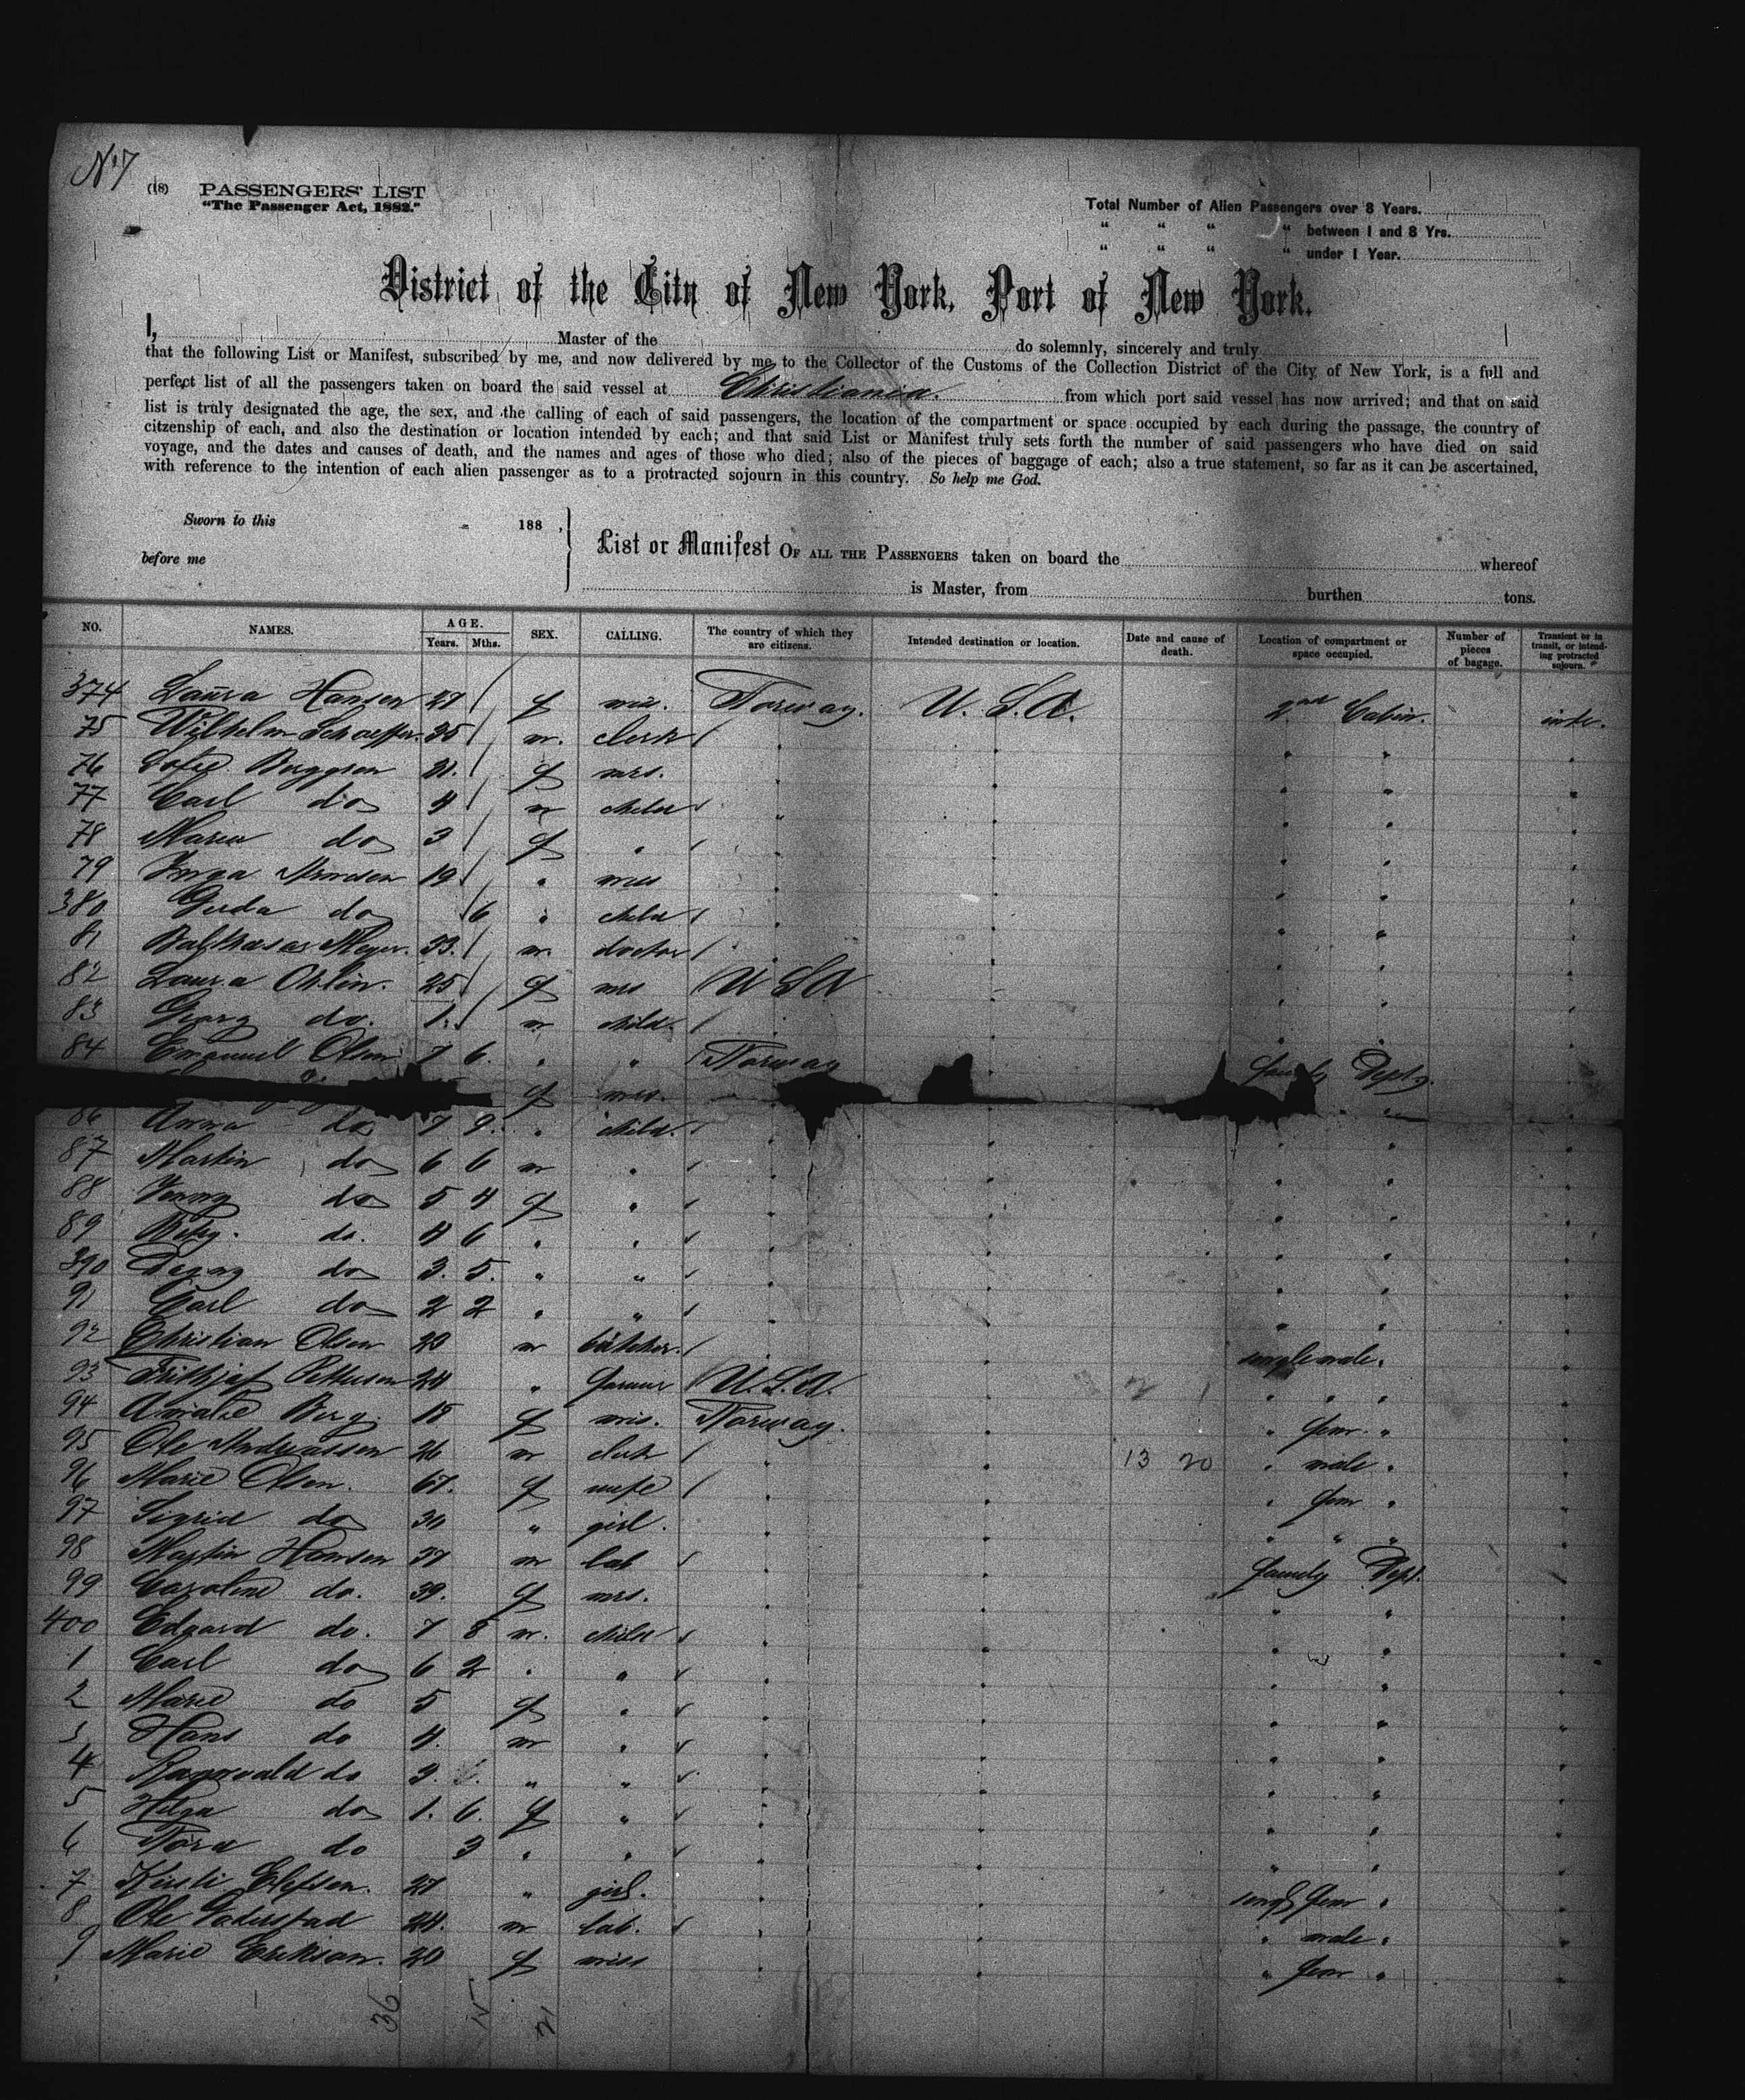 No 7
(18) PASSENGERS' LIST
"The Passenger Act, 1882."
Total Number of Alien Passengers over 8 Years.
" " " " between 1 and 8 Yrs.
" " " " under 1 Year.
District of the City of New York, Port of New York.
I, Master of the do solemnly, sincerely and truly
that the following List or Manifest, subscribed by me, and now delivered by me to the Collector of the Customs of the Collection District of the City of New York, is a full and
perfect list of all the passengers taken on board the said vessel at Christiania. from which port said vessel has now arrived; and that on said
list is truly designated the age, the sex, and the calling of each of said passengers, the location of the compartment or space occupied by each during the passage, the country of
citzenship of each, and also the destination or location intended by each; and that said List or Manifest truly sets forth the number of said passengers who have died on said
voyage, and the dates and causes of death, and the names and ages of those who died; also of the pieces of baggage of each; also a true statement, so far as it can be ascertained,
with reference to the intention of each alien passenger as to a protracted sojourn in this country. So help me God.
Sworn to this 188 ,
before me
List or Manifest OF ALL THE PASSENGERS taken on board the whereof
is Master, from burthen tons.
NO. NAMES. AGE. Years. Mths. SEX. CALLING. The country of which they are citizens. Intended destination or location. Date and cause of death. Location of compartment or space occupied. Number of pieces of bagage. Transient or in transit, or intending protracted sojourn.
374 Laura Hansen 27 f mis. Norway. U. S. A. 2nd Cabin.
75 Wilhelm Schaeffer. 35 m. clerk
76 f mrs.
77 Carl do 4 m child
78 Marie do 3 f "
79 19 "
380 Gerda do 6 " child
81 Balthasar Meyer. 33. m. doctor
82 Laura Ohlin. 25 f mrs U S A
83 Georg do. 1. m child.
84 Emanuel Olsen 7 6. " " Norway family Dept.
f mrs.
86 Anna do 7 9. " child.
87 Martin do 6 6 m "
88 Jenny do 5 4 f "
89 do. 4 6 " "
390 Dagny do 3. 5. " "
91 Carl do 2 2 " "
92 Christian Olsen 20 m butcher. single male.
93 Frithjof Pettersen 24 " farmer U. S. A. 2 1 " " "
94 Amalie Berg. 18 f mis. Norway. " fem. "
95 Ole Andreassen 26 m clerk 13 20 " male "
96 Marie Olsen. 67. f wife " fem "
97 Sigrid do 30 " girl. " " "
98 Martin Hansen 37 m lab family Dept.
99 Caroline do. 39. f mrs.
400 Edvard do. 7 8 m. child
1 Carl do 6 2 " "
2 Marie do 5 f "
3 Hans do 4. m "
4 Ragnvald do 3. " "
5 Helga do 1. 6. f "
6 Nora do 3 " "
7 Kirsti Elefsen. 27 " girl. single fem "
8 Ole 24. m lab. " male "
9 Marie Erikson. 20 f miss " fem "
36 15 21